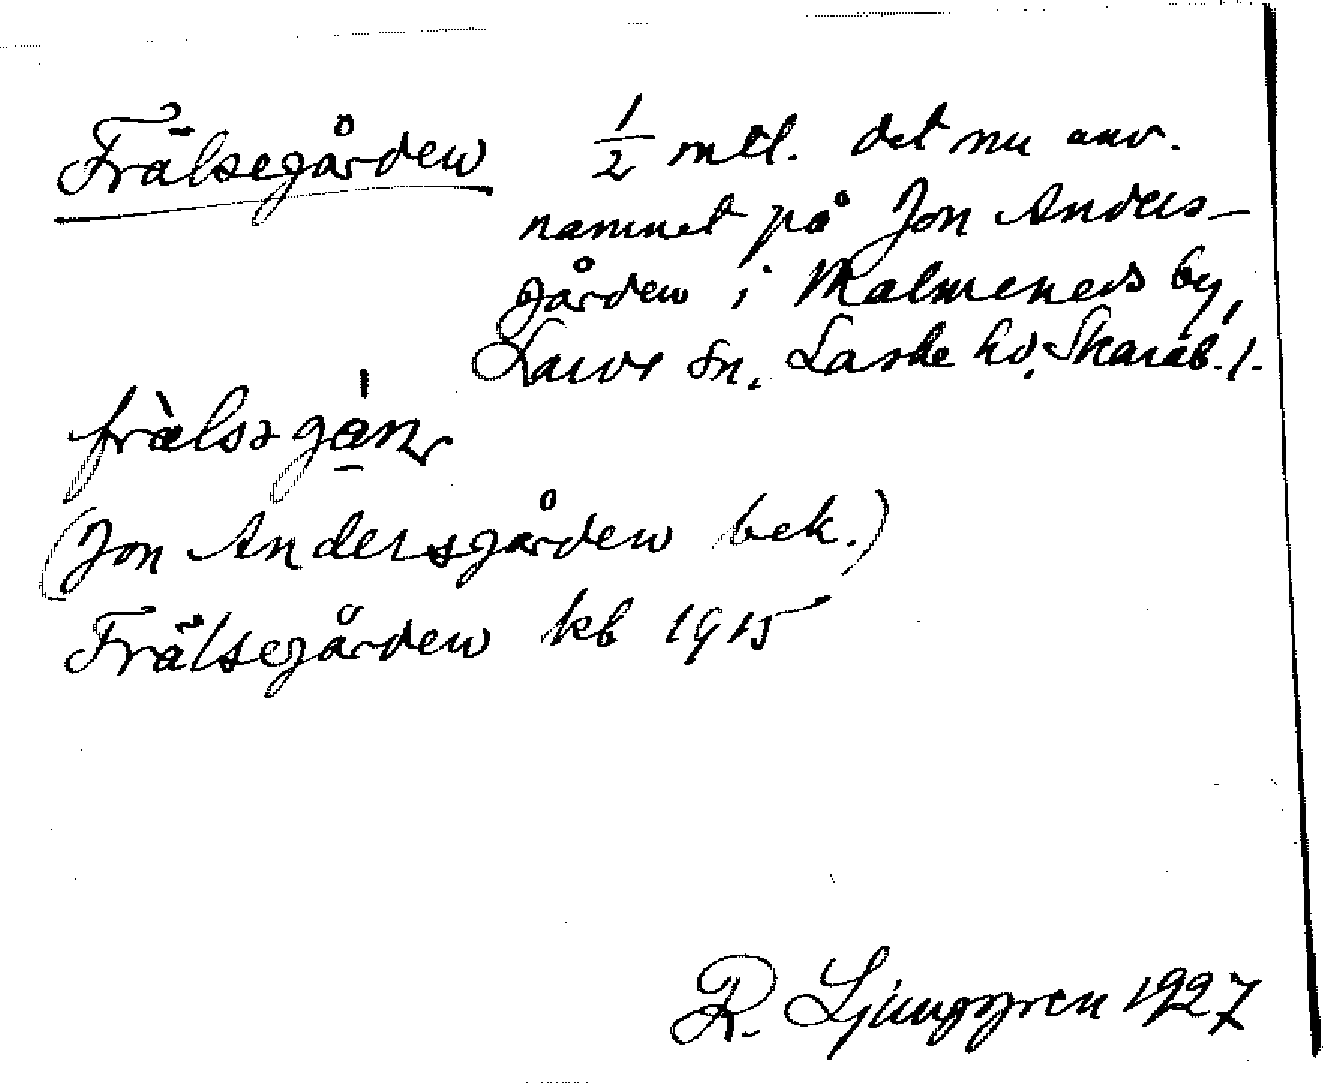 Frälsegården 1/2 mtl. det nu anv.
namnet på Jon Anders-
gården i Malmeneds by,
Larvs sn, Laske hd, Skarab. l.
frälsəgán
(Jon Andersgården bek.)
Frälsegården kb 1915
R. Ljunggren 1927